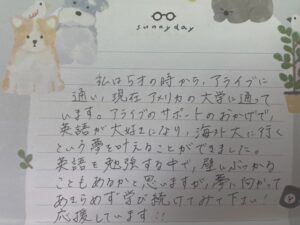 sunnyday
私は5才の時から、アライブに
通い、現在アメリカの大学に通って
います。アライブのサポートのおかげで、
英語が大好きになり、海外大に行く
という夢を叶えることができました。
英語を勉強する中で、壁にぶつかる
こともあるかと思いますが、夢に向かって
あきらめず学び続けてみて下さい!
応援しています!!